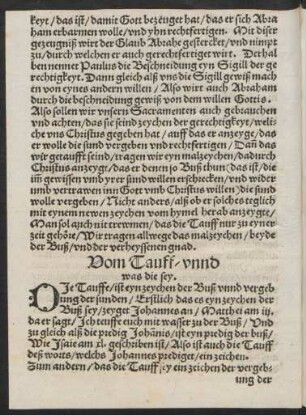 keyt / das ist / damit Gott bezeuget hat / das er sich Abra
ham erbarmen wolle / vnd yhn rechtfertigen. Mit diser
gezeugniß wirt der Glaub Abrahe gestercket / vnd nimpt
zu / durch welchen er auch gerechtfertiget wirt. Derhal
ben nennet Paulus die Beschneidung eyn Sigill der ge
rechtigkeyt. Dann gleich alß vns die Sigill gewiß mach
en von eynes andern willen / Also wirt auch Abraham
durch die beschneidung gewiß von dem willen Gottis.
Also sollen wir vnsern Sacramenten auch gebrauchen
vnd achten / das sie seind zeychen der gerechtigkeyt / weli
che vns Christus gegeben hat / auff das er anzeyge / das
er wolle die sund vergeben vnd rechtfertigen / Dañ das
wir getaufft seind / tragen wir eyn malzeychen / dadurch
Christus anzeygt / das er denen so Buß thun / das ist / die
im̃ gewissen vmb yrer sund willen erschrocken / vnd wider
umb vertrawen inn Gott vmb Christus willen / die sund
wolle vergeben / Nicht anders / alß ob er solches teglich
mit eynem newen zeychen vom hymel herab anzeygte /
Man sol auch nit trewmen / das die Tauff nur zu eyner
zeit gehöre / Wir tragen allwege das malzeychen / beyde
der Buß / vnd der verheyssenen gnad.
Vom Tauff / vnnd
was die sey.
DJe Tauffe / ist eyn zeychen der Buß vnnd vergeb
ung der sunden / Erstlich das es eyn zeychen der
Buß sey / zeyget Johannes an / Matthei am iij.
da er sagt / Jch teuffe euch mit wasser zu der Buß / Vnd
zu gleich alß die predig Johãnis / ist eyn predig der buß /
Wie Jsaie am xl. geschriben ist / Also ist auch die Tauff
deß worts / welchs Johannes prediget / ein zeichen.
Zum andern / das die Tauff / ey ein zeichen der vergeb-
ung der